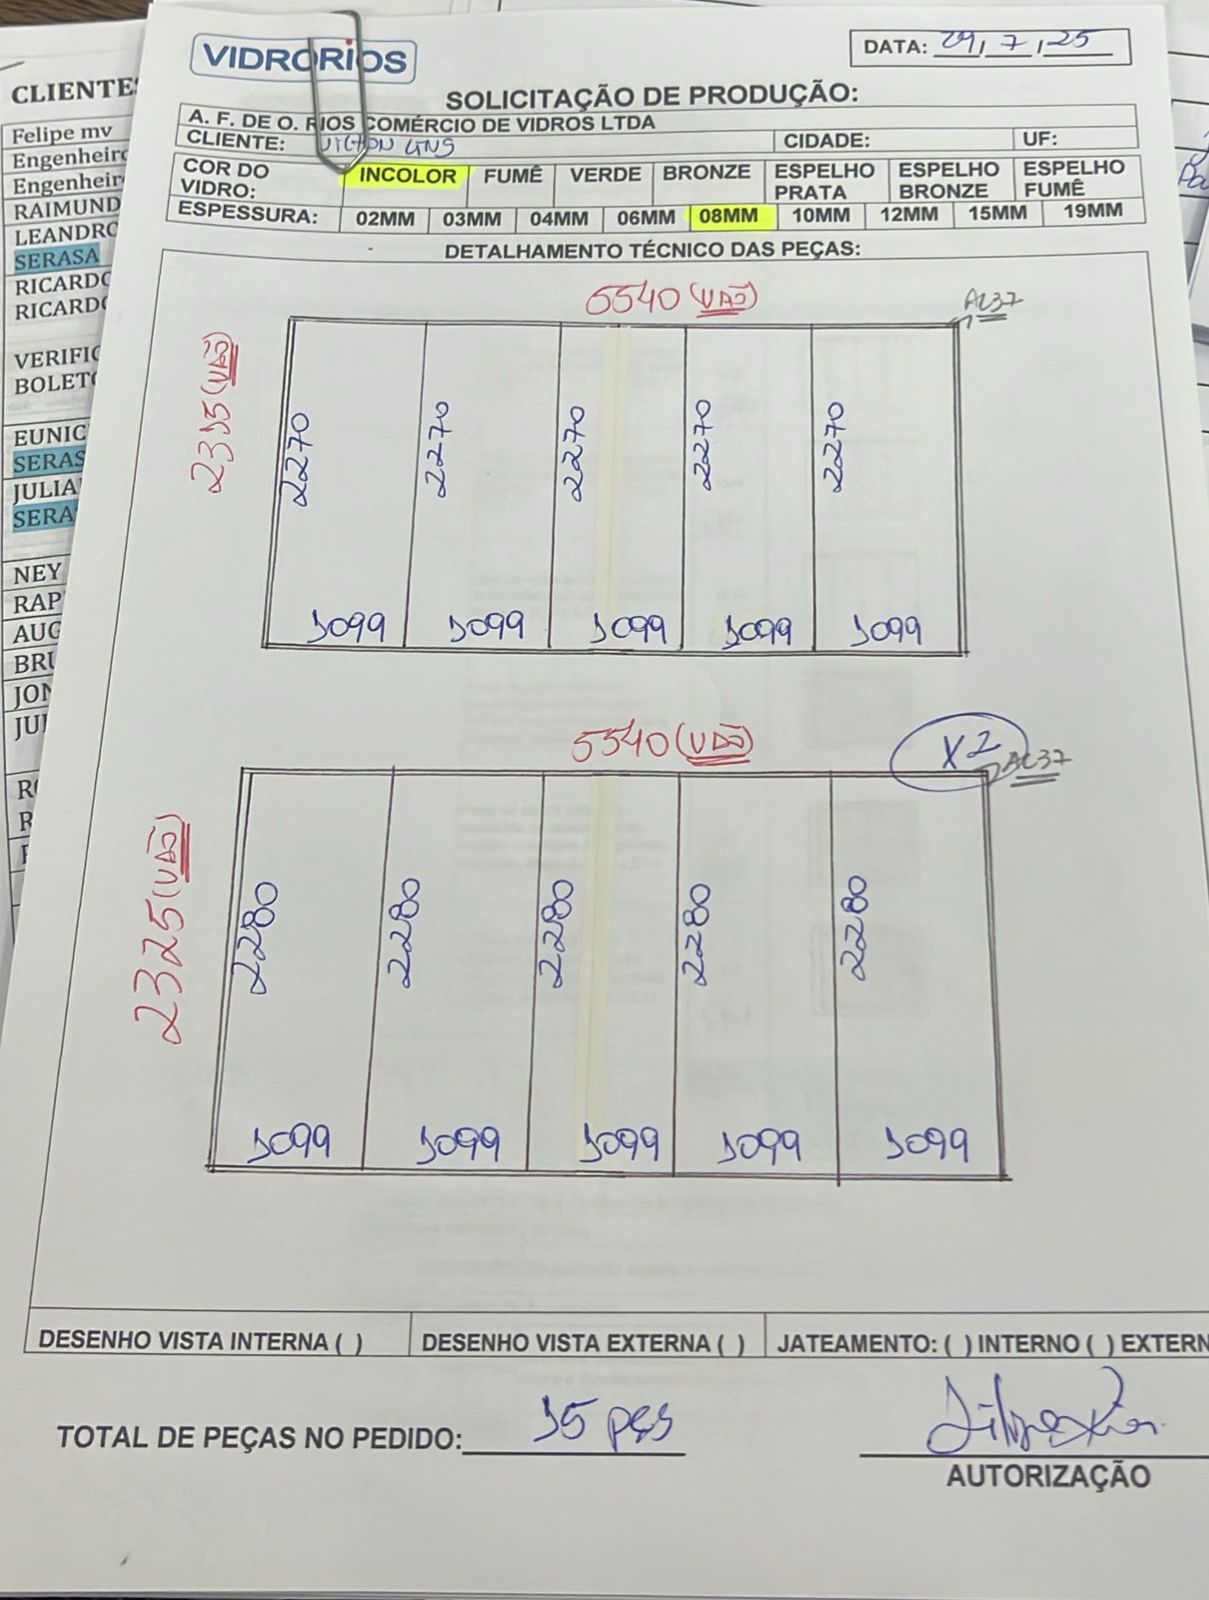 VIDRORiOS
DATA: 29/7/25
SOLICITAÇÃO DE PRODUÇÃO:
A. F. DE O. RIOS COMÉRCIO DE VIDROS LTDA
CLIENTE: CIDADE: UF:
COR DO VIDRO: INCOLOR FUMÊ VERDE BRONZE ESPELHO PRATA ESPELHO BRONZE ESPELHO FUMÊ
ESPESSURA: 02MM 03MM 04MM 06MM 08MM 10MM 12MM 15MM 19MM
DETALHAMENTO TÉCNICO DAS PEÇAS:
5540 (VÃO)
AL37
2315 (VÃO)
2270 2270 2270 2270 2270
1099 1099 1099 1099 1099
5540 (VÃO)
X2
AL37
2325 (VÃO)
2280 2280 2280 2280 2280
1099 1099 1099 1099 1099
DESENHO VISTA INTERNA ( ) DESENHO VISTA EXTERNA ( ) JATEAMENTO: ( ) INTERNO ( ) EXTERN
TOTAL DE PEÇAS NO PEDIDO: 15 pçs
AUTORIZAÇÃO
CLIENTES
Felipe mv
Engenheiro
Engenheir
RAIMUND
LEANDRO
SERASA
RICARDO
RICARDO
VERIFIC
BOLETO
EUNIC
SERAS
JULIA
SERA
NEY
RAP
AUG
BRU
JON
JUI